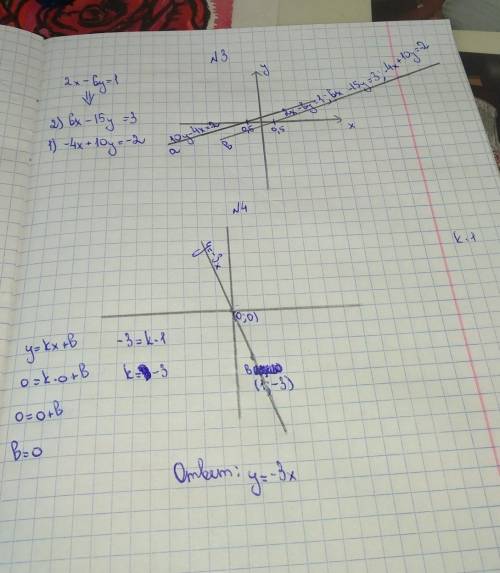 N3
2x-6y=1
⇓
2) 6x-15y=3
1) -4x+10y=-2
y
10y-4x=2
-15y=3; -4x+10y=-2
0,5
x
a
b
N4
y=-3x
k·1
(0;0)
y=kx+b
-3=k·1
0=k·0+b
k=-3
B
(1;-3)
0=0+b
b=0
Ответ: y=-3x